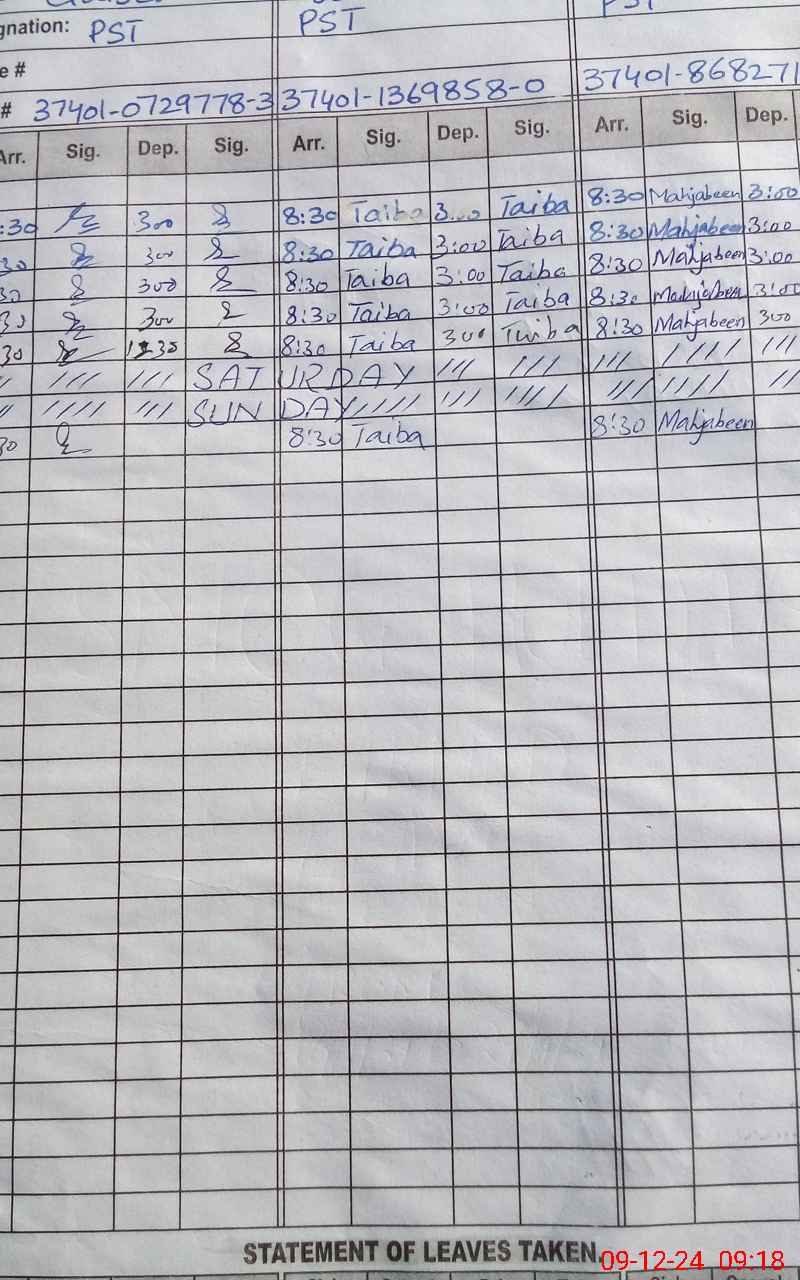 gnation: PST PST PST
e #
# 37401-0729778-3 37401-1369858-0 37401-868271
Arr. Sig. Dep. Sig. Arr. Sig. Dep. Sig. Arr. Sig. Dep.
:30 300 8:30 Taiba 3:00 Taiba 8:30 Mahjabeen 3:00
30 300 8:30 Taiba 3:00 Taiba 8:30 Mahjabeen 3:00
30 300 8:30 Taiba 3:00 Taiba 8:30 Mahjabeen 3:00
30 300 8:30 Taiba 3:00 Taiba 8:30 Mahjabeen 3:00
30 12:30 8:30 Taiba 300 Taiba 8:30 Mahjabeen 300
SATURDAY
SUNDAY
30 8:30 Taiba 8:30 Mahjabeen
STATEMENT OF LEAVES TAKEN
09-12-24 09:18